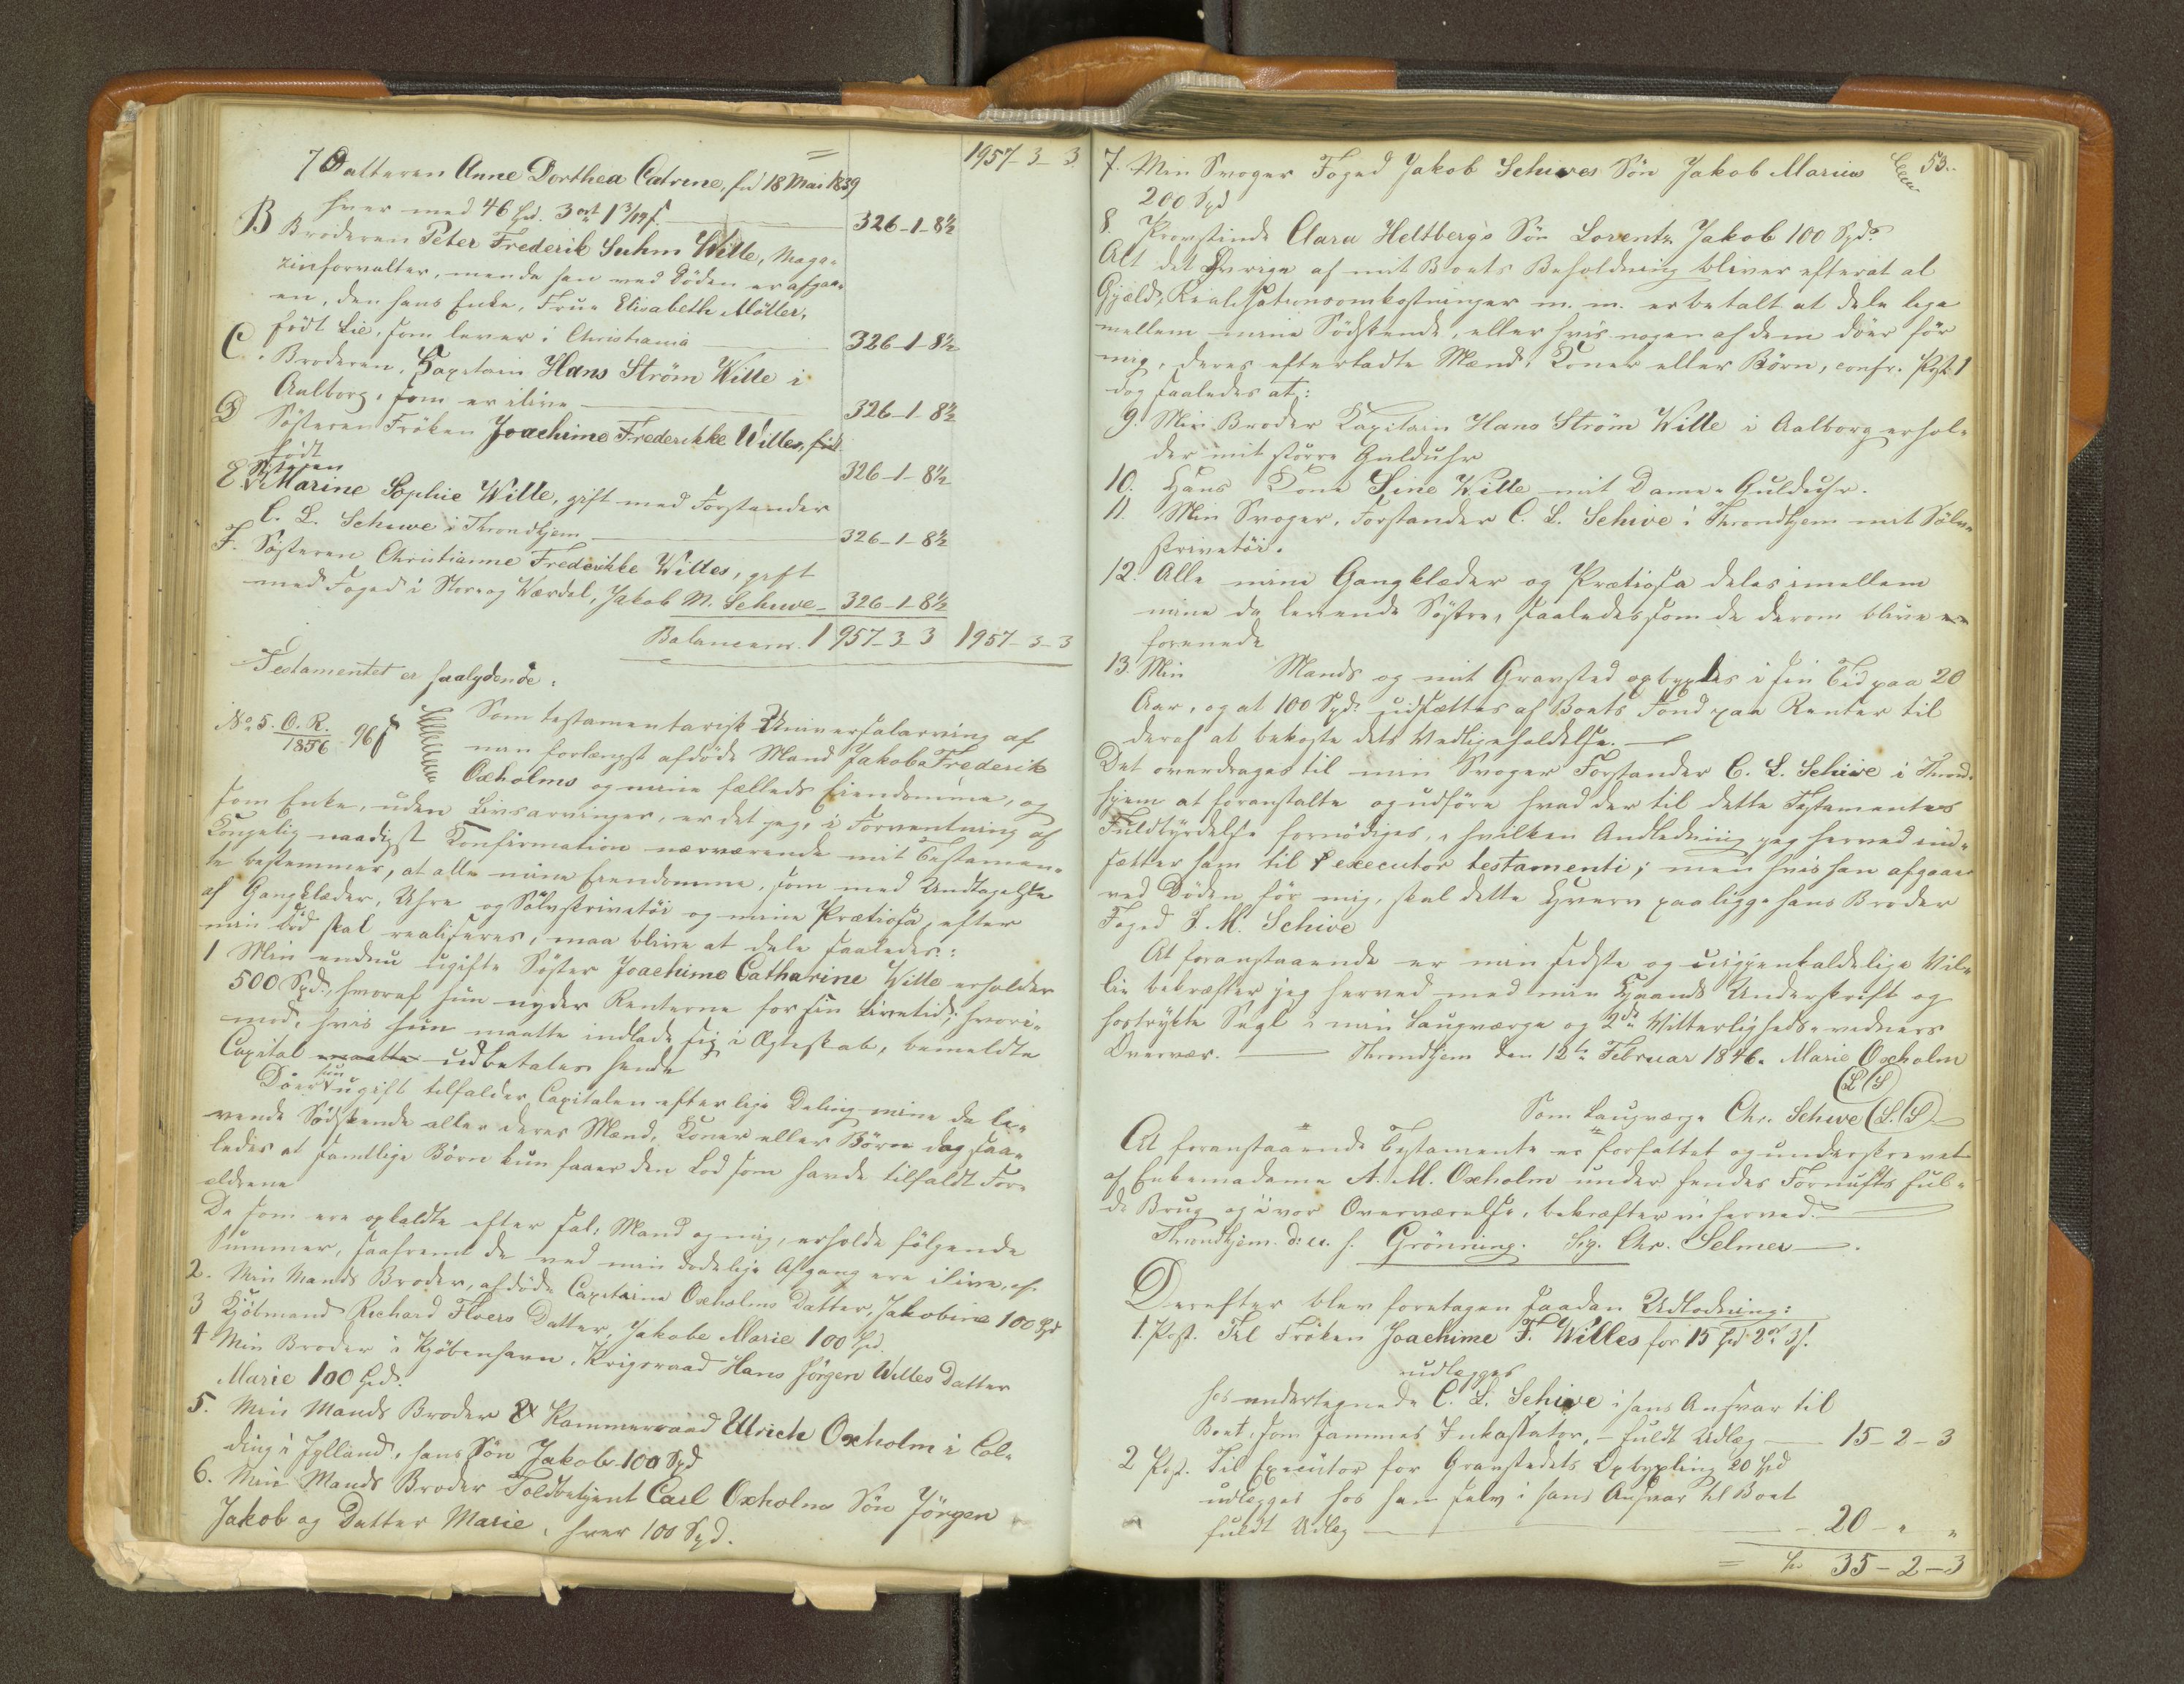 = 1957-3-3
7 Datteren Anne Dorthea Catrine, fød 18 Mai 1839
hver med 46 Spd. 3 ort 1 3/19 s. 326-1-8½
B Broderen Peter Frederik Suhm Wille, Maga-
zinforvalter, men da han ved Døden er afgaa-
en, den hans Enke, Frue Elisabeth Möller,
født Lie, som lever i Christiania 326-1-8½
C. Broderen, Kapitain Hans Strøm Wille i
Aalborg, som er ilive 326-1-8½
D Søsteren Frøken Joachime Frederikke Willes,
født 326-1-8½
E. Søsteren Marine Sophie Wille, gift med Forstander
C. L. Schiwe i Throndhjem 326-1-8½
F. Søsteren Christianne Frederikke Willes, gift
med Foged i Stor- og Værdal, Jakob M. Schiwe - 326-1-8½
Balancerer. 1957-3-3 1957-3-3
Testamentet er saalydende:
No 5. O.R. 1856 96 s
Som testamentarisk Universalarving af
min forlængst afdøde Mand Jakob Frederik
Oxholms og mine fælleds Eiendomme, og
som Enke, uden Livsarvinger, er det jeg, i Forventning af
Kongelig naadigst Konfirmation nærværende mit Testamen-
te bestemmer, at alle mine Eiendomme, som med Undtagelse
af Gangklæder, Uhre og Sølvskrivetøi og mine Prætiosa, efter
min Død skal realiseres, maa blive at dele saaledes:
1 Min endnu ugifte Søster Joachime Catharine Wille erholder
500 Spd., hvoraf hun nyder Renterne for sin Livstid; hvori-
mod, hvis hun maatte indlade sig i Ægteskab, bemeldte
Capital maatte udbetales hende
Döer hun ugift tilfalder Capitalen efter lige Deling mine da le-
vende Sødskende eller deres Mænd, Koner eller Börn dog saa-
ledes at samtlige Börn kun faaer den Lod som havde tilfaldt For-
ældrene
De som ere opkaldte efter sal: Mand og mig, erholde følgende
Summer, saafremt de ved min dødelige Afgang ere ilive, as.
2. Min Mands Broder, afdøde Capitaine Oxholms Datter, Jakobine 100 Spd
3 Kjøbmand Richard Floers Datter, Jakobe Marie 100 Spd.
4 Min Broder i Kjøbenhavn, Krigsraad Hans Jørgen Willes Datter
Marie 100 Spd.
5. Min Mands Broder Kammerraad Ulrich Oxholm i Col-
ding i Jylland, hans Søn Jakob 100 Spd
6. Min Mands Broder Toldbetjent Carl Oxholms Søn Jörgen
Jakob og Datter Marie, hver 100 Spd.
53.
7. Min Svoger Foged Jakob Schives Søn Jakob Marius
200 Spd
8. Provstinde Clara Heltbergs Søn Lorentz Jakob 100 Spd.
Alt det Øvrige af mit Boets Beholdning bliver efterat al
Gjæld, Realisationsomkostninger m. m. er betalt at dele lige
mellem mine Sødskende, eller hvis nogen af dem döer før
mig, deres efterladte Mænd, Koner eller Börn, confr. Post 1
dog saaledes at:
9. Min Broder Kapitain Hans Strøm Wille i Aalborg erhol-
der mit større GuldUhr
10. Hans Kone Line Wille mit Dame-Guldeuhr.
11. Min Svoger, Forstander C. L. Schive i Throndhjem mit Sølv-
skrivetøi.
12. Alle mine Gangklæder og Prætiosa deles imellem
mine da levende Søstre, saaledes som de derom blive
forenede
13. Min Mands og mit Gravsted opbygges i sin Tid paa 20
Aar, og at 100 Spd. udsættes af Boets Fond paa Renter til
deraf at bekoste dets Vedligeholdelse.
Det overdrages til min Svoger Forstander C. L. Schive i Thrond-
hjem at foranstalte og udføre hvad der til dette Testamentes
Fuldbyrdelse fornødiges, i hvilken Andledning jeg herved ind-
sætter ham til executor testamenti; men hvis han afgaaer
ved Döden før mig, skal dette Hverv paaligge hans Broder
Foged J. M. Schive
At foranstaaende er min sidste og uigjenkaldelige Vil-
lie bekræfter jeg herved med min Haands Underskrift og
hostrykte Segl i min Laugværge og 2de Vitterligheds-vedners
Overvær. Throndhjem den 12te Februar 1846. Marie Oxholm
(L.S)
Som Laugværge Chr. Schive (L.S)
At foranstaaende Testamente er forfattet og underskrevet
af Enkemadame A. M. Oxholm under hendes Fornufts ful-
de Brug og i vor Overværelse, bekræfter vi herved.
Throndhjem. d: u. s. Grönning. Sig. Chr. Selmer.
Derefter blev foretagen saadan Udlodning:
1. Post. Til Frøken Joachime F. Willes for 15 Spd 2 ort 3 s.
udlægges
hos undertegnede C. L. Schive i hans Ansvar til
Boet, som sammes Inkassator, - fuldt Udlæg 15-2-3
2 Post. Til Executor for Gravstedets Opbygling 20 Spd
udlægges hos ham selv i hans Ansvar til Boet
fuldt Udlæg - 20 - " "
= Sp. 35-2-3